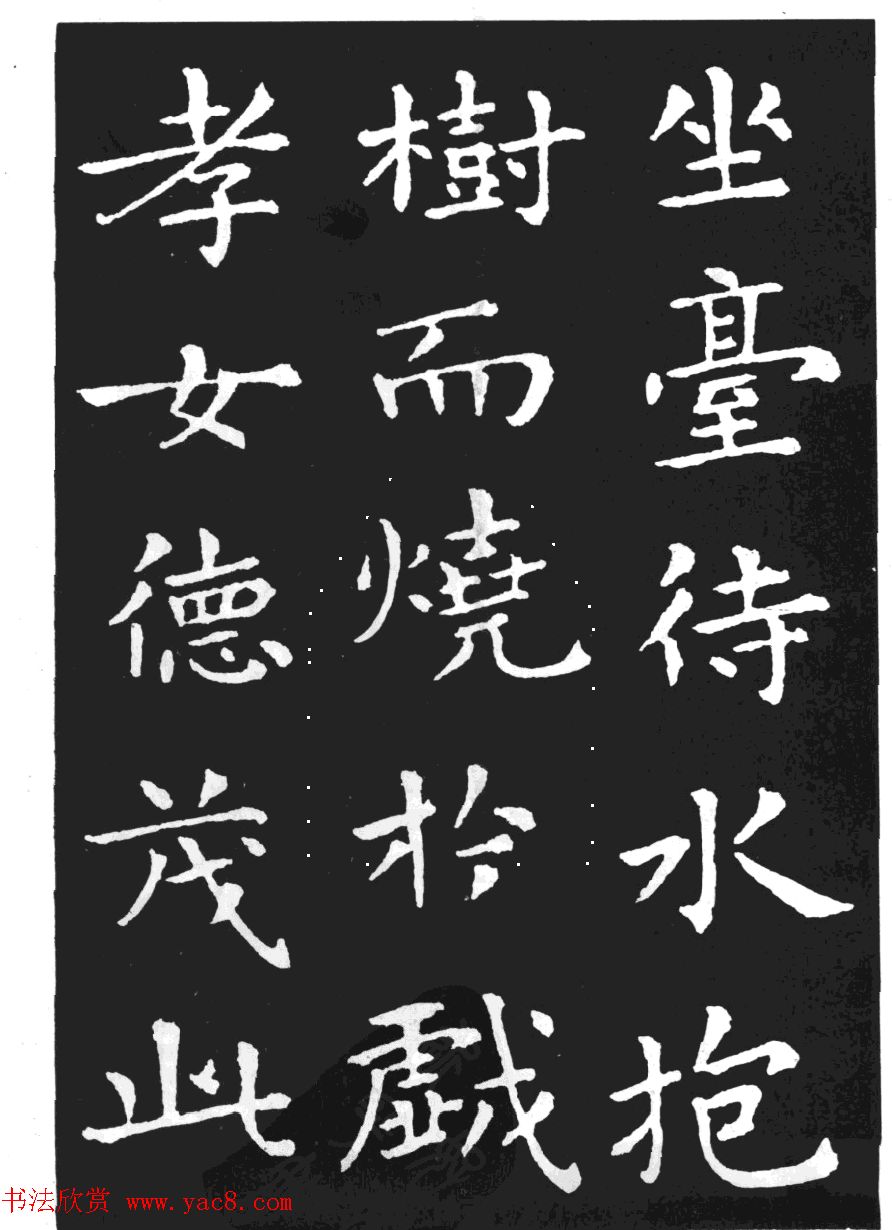 坐臺待水抱
樹而燒於戲
孝女德茂此
书法欣赏 www.yac8.com